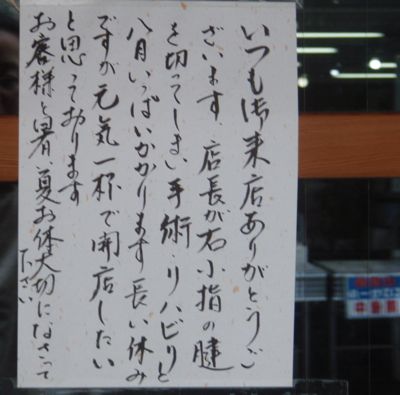 いつも御来店ありがとうご
ざいます。店長が右小指の腱
を切ってしまい手術・リハビリと
八月いっぱいかかります長い休み
ですが元気一杯で開店したい
と思っております
お客様も暑い夏お体大切になさって
下さい